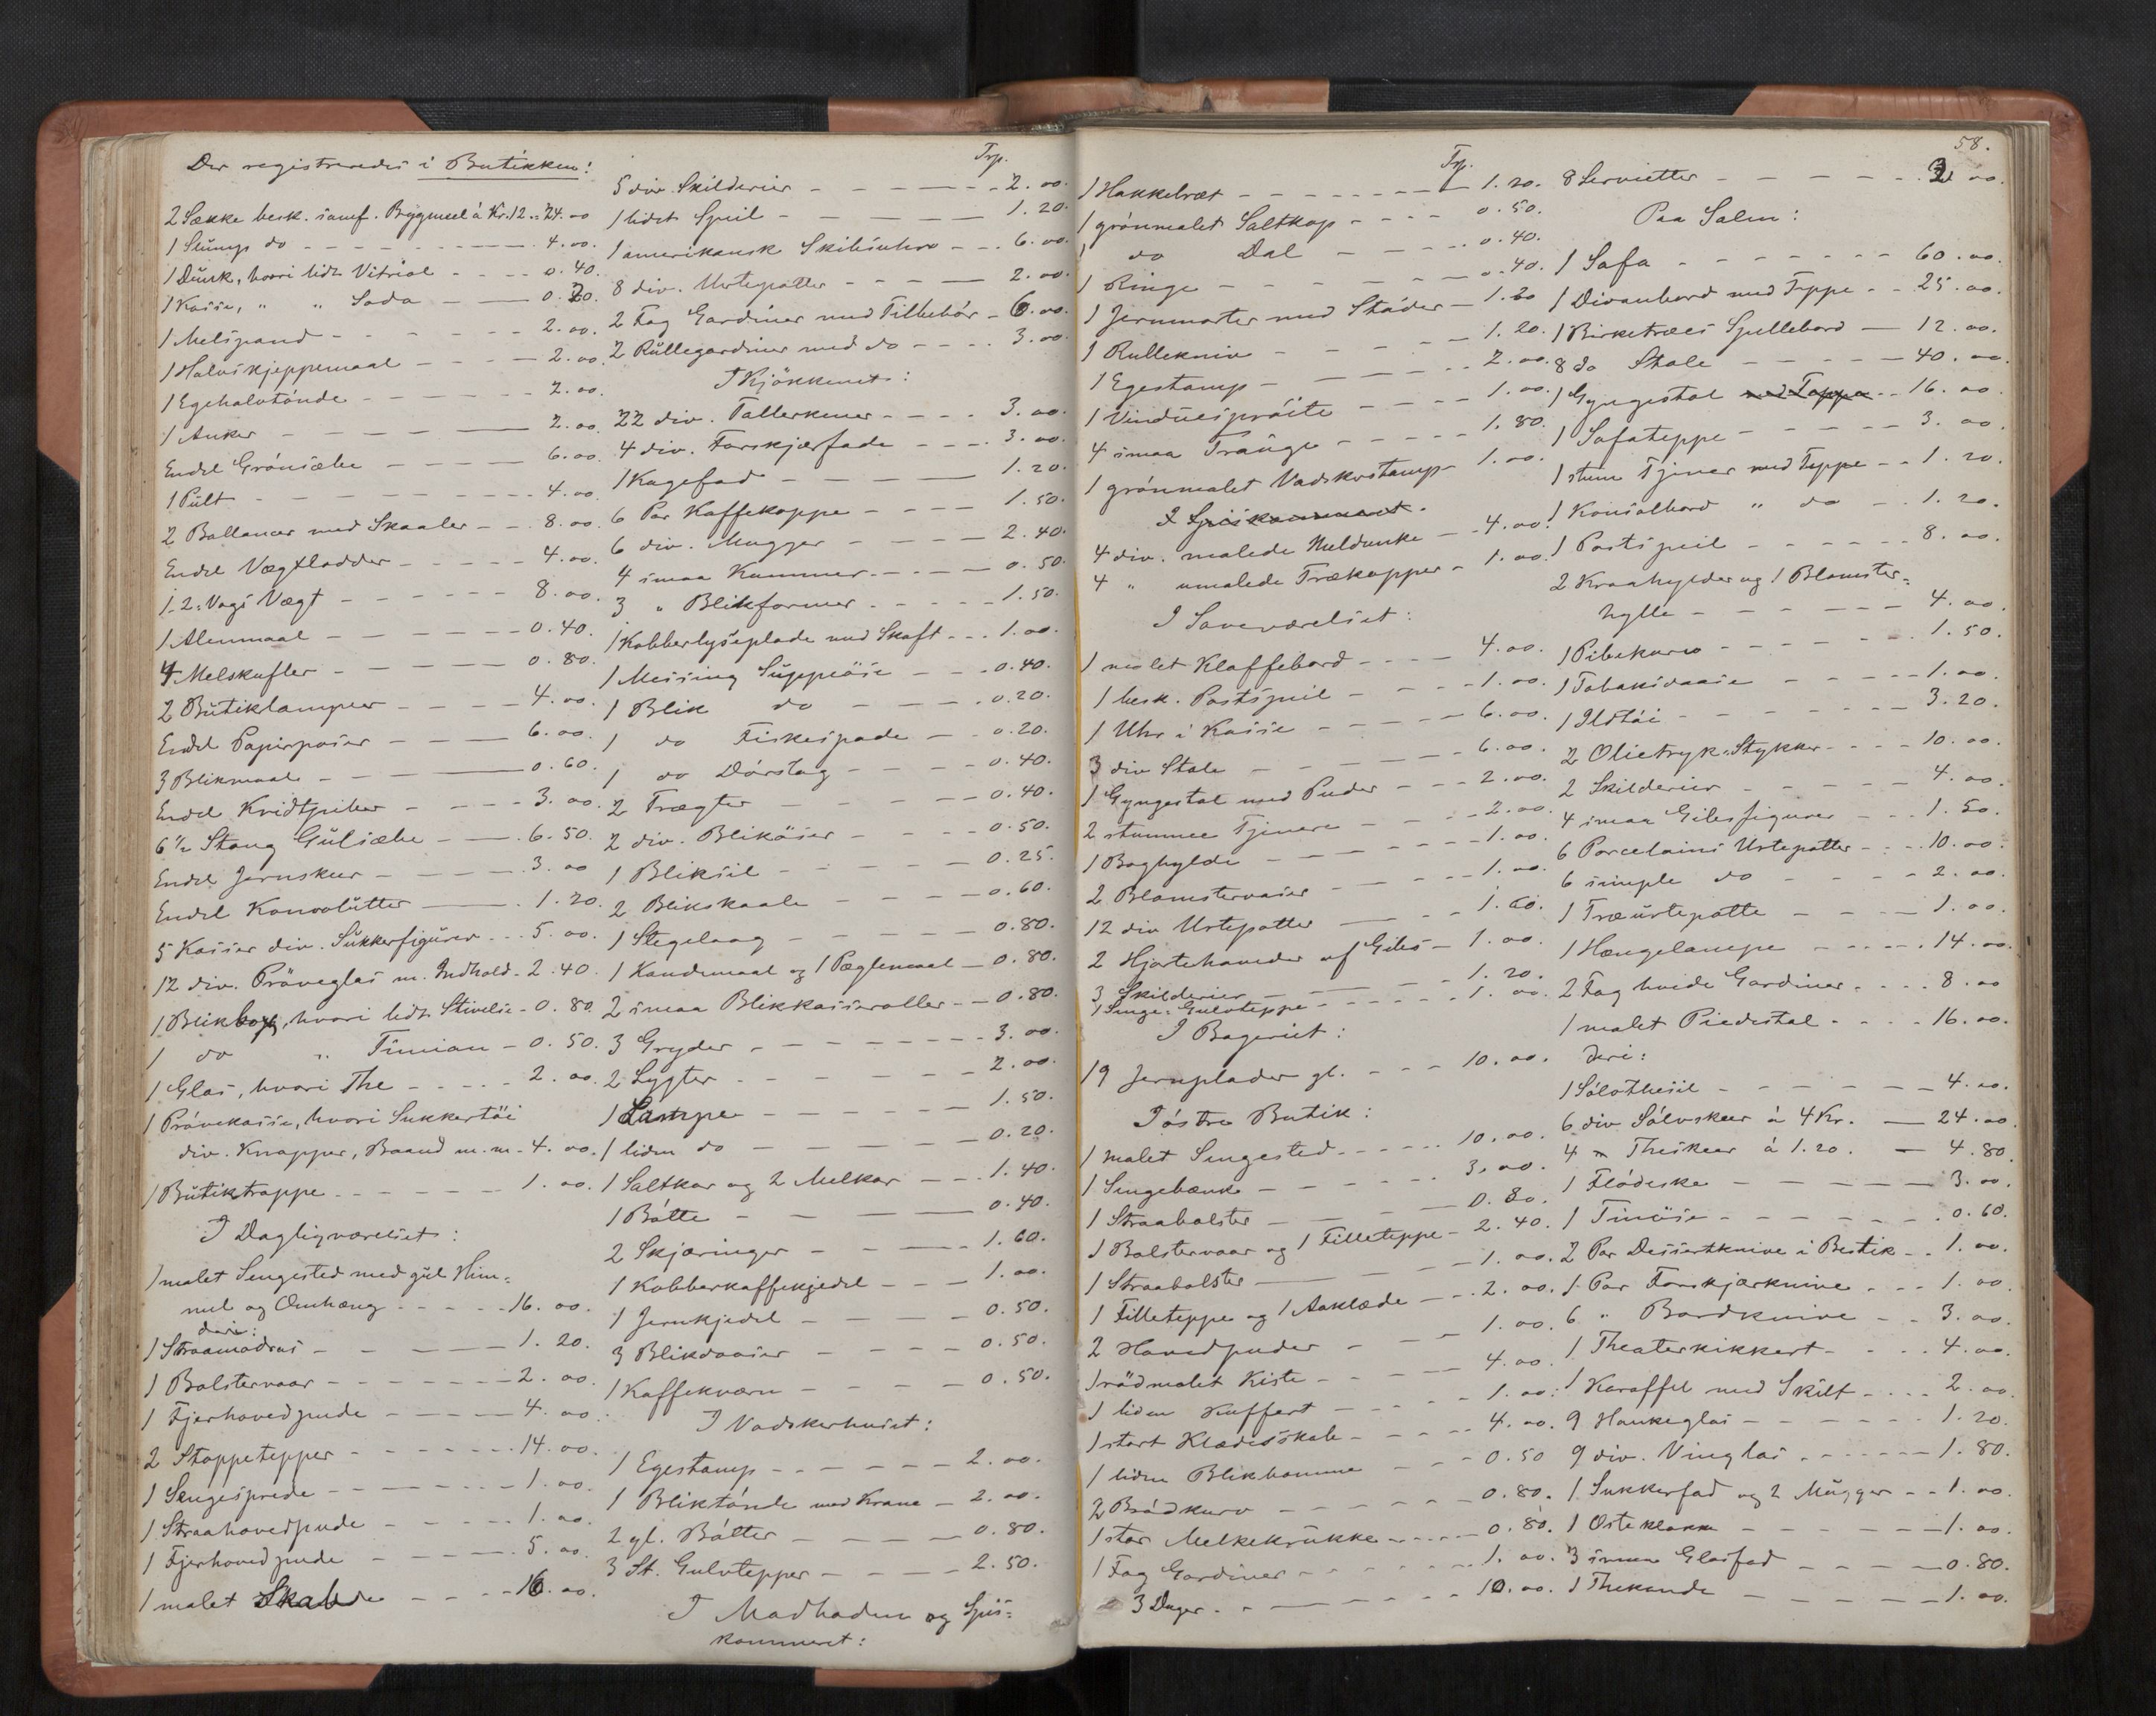 Der registreredes i Butikken:
2 Sække besk. samf. Bygmeel à Kr. 12 = 24.00
1 Slump do 4.00.
1 Dunk, hvori lidt Vitriol 0.40.
1 Kasse, " " Soda 0.20.
1 Melspand 2.00.
1 Halvskjeppemaal 2.00.
1 Egehalvtønde 2.00.
1 Anker 2.00.
Endel Grønsæbe 6.00.
1 Pult 4.00.
2 Ballancer med Skaaler 8.00.
Endel Vægtlodder 4.00.
1 2-Vogs Vægt 8.00.
1 Alenmaal 0.40.
4 Melskufler 0.80.
2 Butiklamper 4.00.
Endel Papirposer 6.00.
3 Blikmaal 0.60.
Endel Kridtpiber 3.00.
6 1/2 Stang Gulsæbe 6.50.
Endel Jernskeer 3.00
Endel Konvolutter 1.20.
5 Kasser div. Sukkerfigurer 5.00.
12 div. Prøveglas m. Indhold 2.40.
1 Blikbox, hvori lidt Stivelse 0.80.
1 do " Timian 0.50.
1 Glas, hvori The 2.00.
1 Prøvekasse, hvori Sukkertøi
div. Knapper, Baand m. m. 4.00.
1 Butiktrappe 1.00.
I Dagligværelset:
1 malet Sengested med gul Him=
mel og Omhæng 16.00.
deri:
1 Straamadras 1.20.
1 Bolstervaar 2.00.
1 Fjerhovedpude 4.00.
2 Stoppetepper 14.00.
1 Sengesprede 1.00.
1 Straahovedpude 1.00.
1 Fjerhovedpude 5.00.
1 malet Skab 16.00.
Trp.
5 div. Skilderier 2.00.
1 lidet Speil 1.20.
1 amerikansk Skibsuhr 6.00.
8 div. Urtepotter 2.00.
2 Fag Gardiner med Tilbehør 6.00.
2 Rullegardiner med do 3.00.
I Kjøkkenet:
22 div. Tallerkener 3.00.
4 div. Forskjærfade 3.00.
1 Kagefad 1.20.
6 Par Kaffekoppe 1.50.
6 div. Mugger 2.40.
4 smaa Kummer 0.50.
3 " Blikformer 1.50.
1 Kobberlyseplade med Skaft 1.00.
1 Messing Suppeøse 0.40.
1 Blik do 0.20.
1 do Fiskespade 0.20.
1 do Dørslag 0.40.
2 Trægter 0.40.
2 div. Blikøser 0.50.
1 Bliksil 0.25.
2 Blikskaale 0.60.
1 Stegelaag 0.80.
1 Kandemaal og 1 Pæglemaal 0.80.
2 smaa Blikkasseroller 0.80.
3 Gryder 3.00.
2 Lygter 2.00.
1 Lampe 1.50.
1 liden do 0.20.
1 Saltkar og 2 Melkar 1.40.
1 Bøtte 0.40.
2 Skjæringer 1.60.
1 Kobberkaffekjedel 1.00.
1 Jernkjedel 0.50.
3 Blikdaaser 0.50.
1 Kaffekværn 0.50.
I Vadskerhuset:
1 Egestamp 2.00.
1 Bliktønde med Krane 2.00.
2 gl. Bøtter 0.80.
3 St. Gulvtepper 2.50.
I Madboden og Spis=
kammeret:
Trp.
1 Hakkebræt 1.20.
1 grønmalet Saltkop 0.50.
1 do Dal 0.40.
1 Ringe 0.40.
1 Jernmorter med Støder 1.20
1 Rullekniv 1.20.
1 Egestamp 2.00.
1 Vinduessprøite 1.00.
4 smaa Trauge 1.80.
1 grønmalet Vadskestamp 1.00.
I Spiskammeret.
4 div. malede Meldunke 4.00.
4 " umalede Trækopper 1.00.
I Soveværelset:
1 malet Klaffebord 4.00.
1 besk. Postspeil 1.00.
1 Uhr i Kasse 6.00.
3 div Stole 6.00.
1 Gyngestol med Puder 2.00.
2 stumme Tjenere 2.00.
1 Boghylde 1.00.
2 Blomstervaser 1.00.
12 div Urtepotter 1.60.
2 Hjortehoveder af Gibs 1.00.
3 Skilderier 1.20.
1 Senge-Gulvteppe 1.00.
I Bageriet:
19 Jernplader gl. 10.00.
I østre Butik:
1 malet Sengested 10.00.
1 Sengebænk 3.00.
1 Straabolster 0.80.
1 Bolstervaar og 1 Filleteppe 2.40.
1 Straabolster 1.00.
1 Filleteppe og 1 Aaklæde 2.00.
2 Hovedpuder 1.00.
1 rødmalet Kiste 4.00.
1 liden Kuffert 1.00.
1 stort Klædesskab 4.00.
1 liden Blikkomme 0.50
2 Brødkurv 0.80.
1 stor Melkekrukke 0.80.
1 Fag Gardiner 1.00.
3 Duger 10.00.
58.
8 Servietter 3.00.
Paa Salen:
1 Sofa 60.00.
1 Divanbord med Teppe 25.00.
1 Birketræes Spillebord 12.00.
8 do Stole 40.00.
1 Gyngestol med Teppe 16.00
1 Sofateppe 3.00.
1 stum Tjener med Teppe 1.20.
1 Konsolbord " do 1.20.
1 Postspeil 8.00.
2 Kraahylder og 1 Blomster=
hylle 4.00.
1 Pibekurv 1.50.
1 Tobaksdaase 1.00.
1 Ildtøi 3.20.
2 Olietryk-Stykker 10.00.
2 Skilderier 4.00.
4 smaa Gibsfigurer 1.50.
6 Porcelains Urtepotter 10.00.
6 simple do 2.00.
1 Træurtepotte 1.00.
1 Hængelampe 14.00.
2 Fag hvide Gardiner 8.00
1 malet Piedestal 16.00.
deri:
1 Sølvthesil 4.00.
6 div Sølvskeer à 4 Kr. 24.00
4 " Theskeer à 1.20. 4.80.
1 Flødeske 3.00.
1 Tinøse 0.60.
2 Par Dessertknive i Bestik 1.00.
1 Par Forskjærknive 1.00
6 " Bordknive 3.00.
1 Theaterkikkert 4.00.
1 Karaffel med Skilt 2.00.
9 Hankeglas 1.20.
9 div. Vinglas 1.80.
1 Sukkerfad og 2 Mugger 1.00.
1 Osteklokke 1.00.
3 smaa Glasfad 0.80.
1 Thekande 1.00.